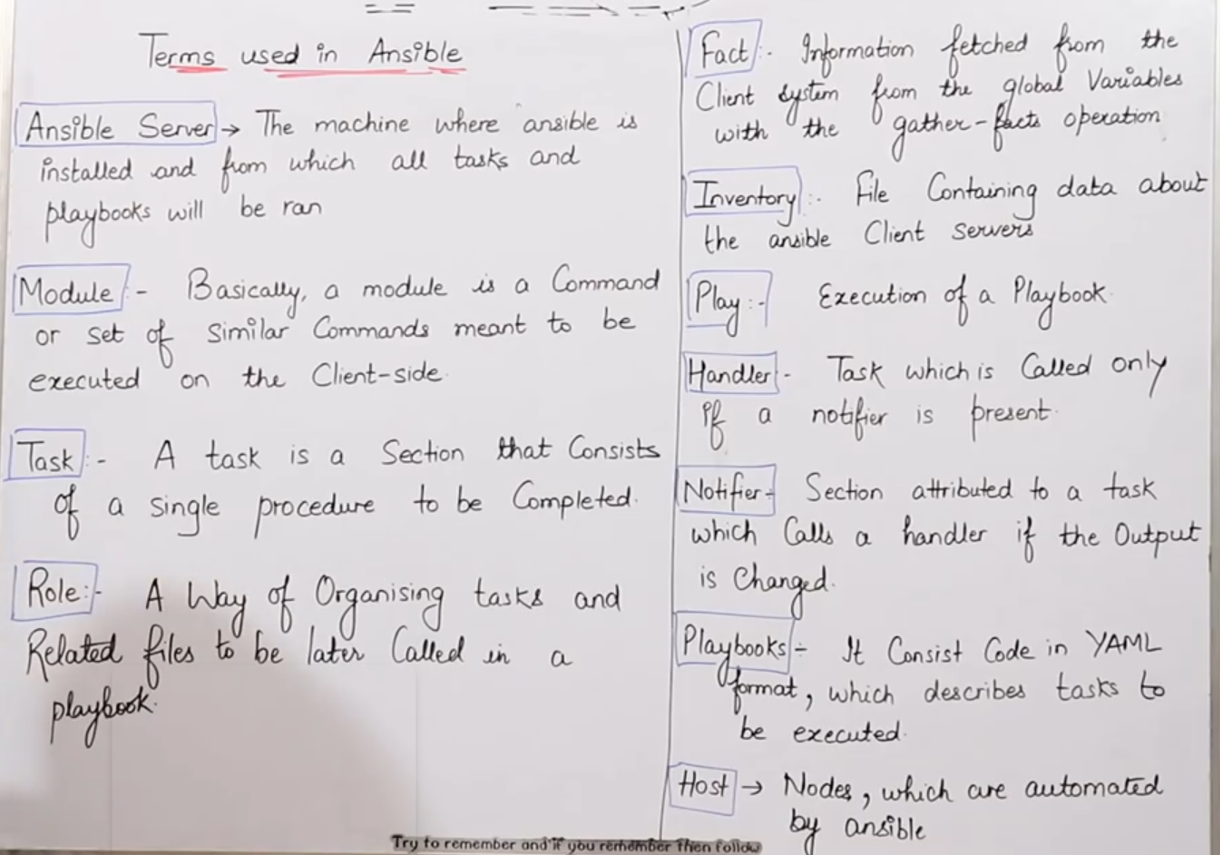 Terms used in Ansible
Ansible Server → The machine where ansible is
installed and from which all tasks and
playbooks will be ran
Module :- Basically, a module is a Command
or set of similar Commands meant to be
executed on the Client-side.
Task :- A task is a Section that Consists
of a single procedure to be Completed.
Role :- A Way of Organising tasks and
Related files to be later Called in a
playbook.
Fact :- Information fetched from the
Client system from the global Variables
with the gather-facts operation
Inventory :- File Containing data about
the ansible Client servers
Play :- Execution of a Playbook.
Handler :- Task which is Called only
if a notifier is present.
Notifier :- Section attributed to a task
which Calls a handler if the Output
is Changed.
Playbooks :- It Consist Code in YAML
format, which describes tasks to
be executed.
Host → Nodes, which are automated
by ansible
Try to remember and if you remember then follow